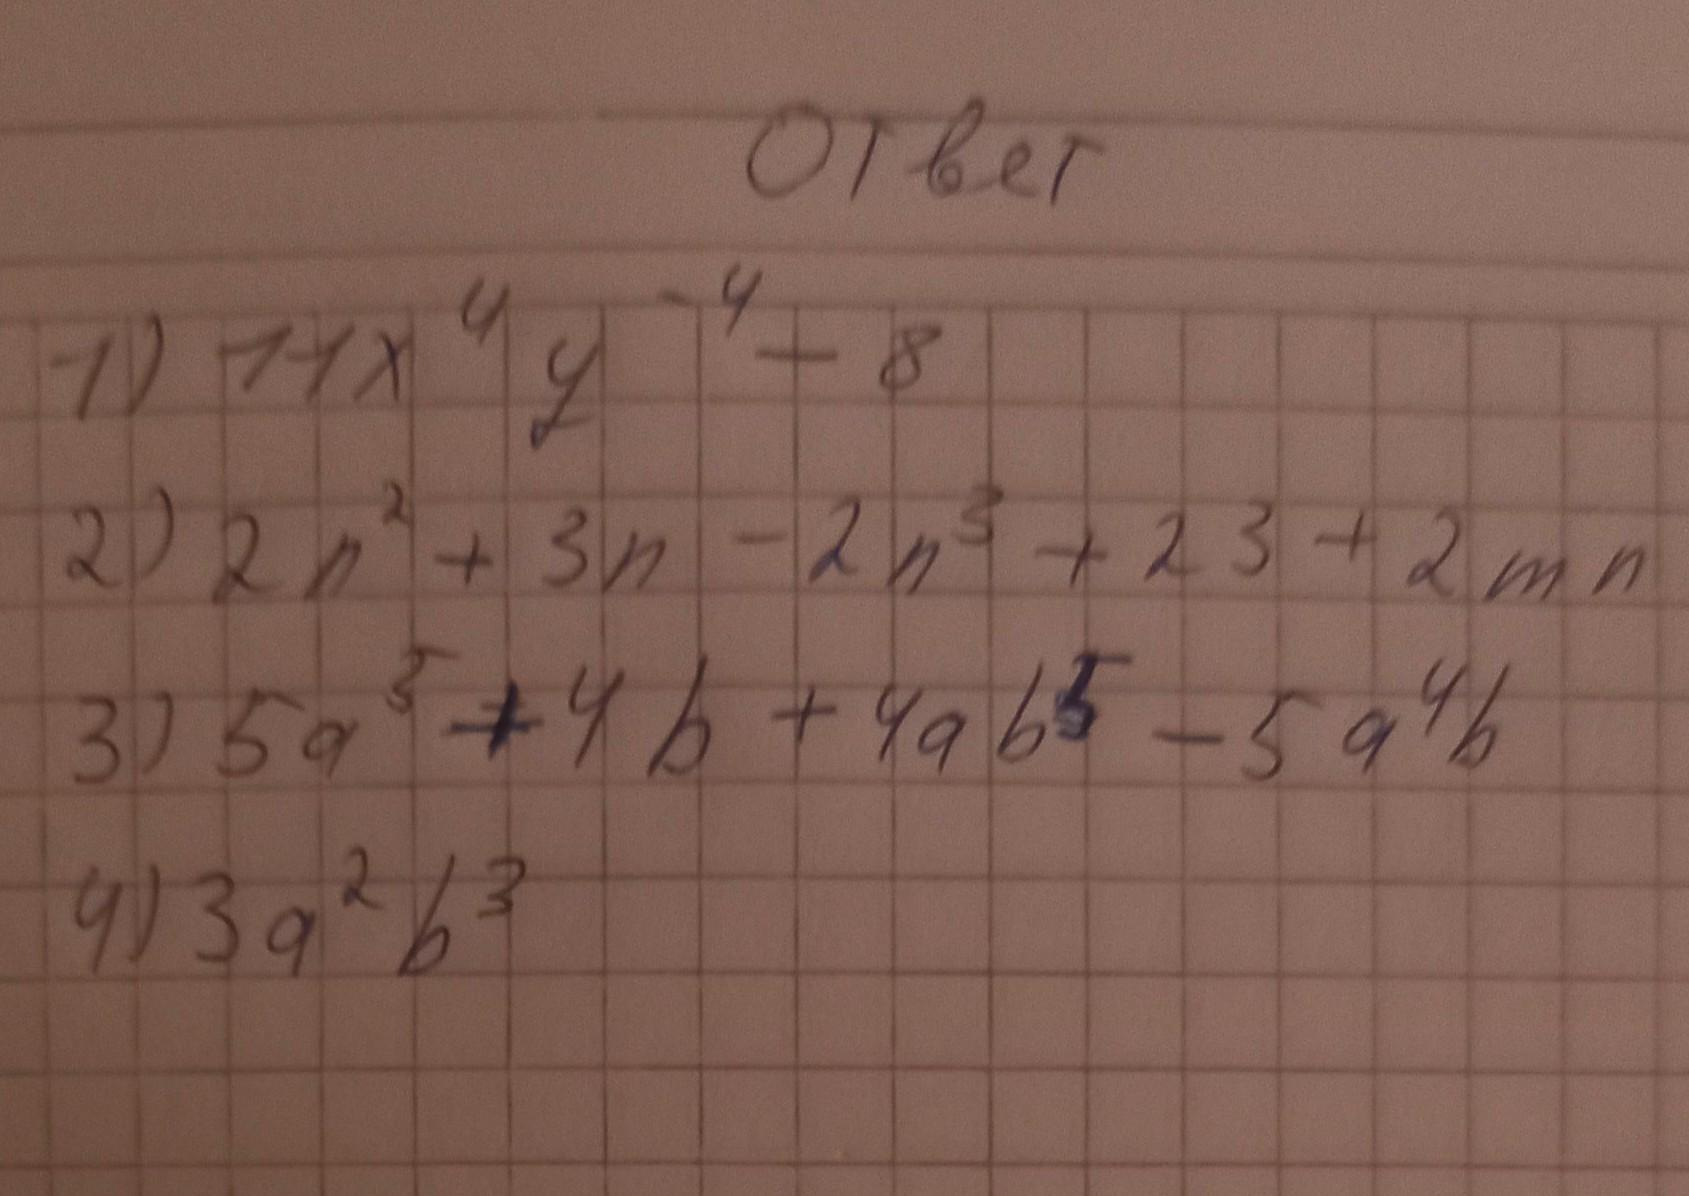 Ответ
1) 11x⁴y⁻⁴ - 8
2) 2n² + 3n - 2n³ + 23 + 2mn
3) 5a⁵ + 4b + 4ab⁵ - 5a⁴b
4) 3a²b³